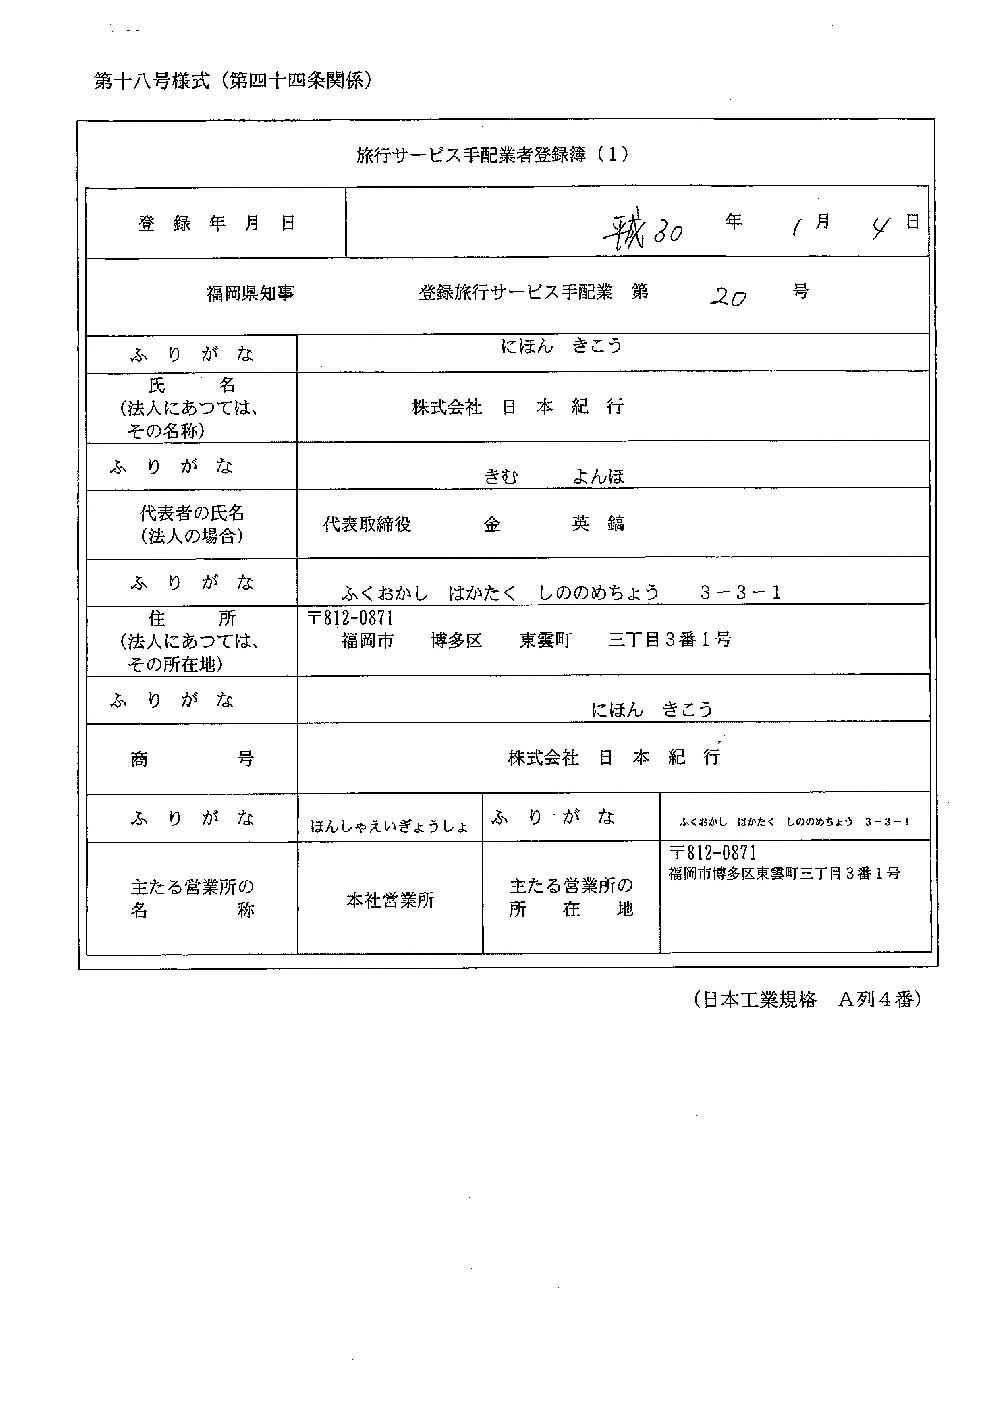 第十八号様式（第四十四条関係）
旅行サービス手配業者登録簿（1）
登 録 年 月 日 平成30 年 1 月 4 日
福岡県知事 登録旅行サービス手配業 第 20 号
ふ り が な にほん きこう
氏 名
（法人にあつては、
その名称） 株式会社 日 本 紀 行
ふ り が な きむ よんほ
代表者の氏名
（法人の場合） 代表取締役 金 英 鎬
ふ り が な ふくおかし はかたく しののめちょう 3－3－1
住 所
（法人にあつては、
その所在地） 〒812-0871
福岡市 博多区 東雲町 三丁目3番1号
ふ り が な にほん きこう
商 号 株式会社 日 本 紀 行
ふ り が な ほんしゃえいぎょうしょ ふ り が な ふくおかし はかたく しののめちょう 3－3－1
主たる営業所の
名 称 本社営業所 主たる営業所の
所 在 地 〒812-0871
福岡市博多区東雲町三丁目3番1号
（日本工業規格 A列4番）